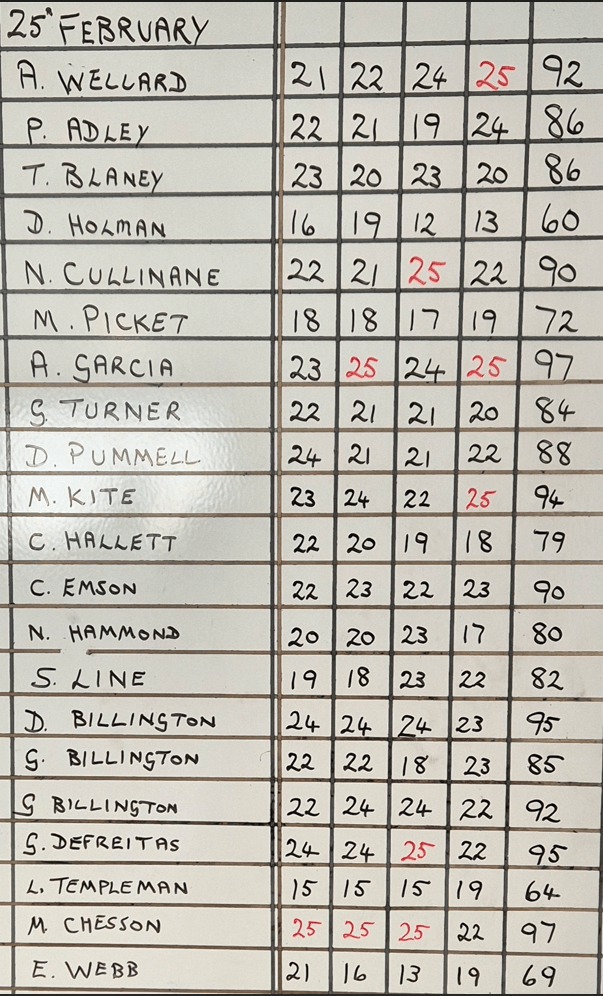 25" FEBRUARY
A. WELLARD 21 22 24 25 92
P. ADLEY 22 21 19 24 86
T. BLANEY 23 20 23 20 86
D. HOLMAN 16 19 12 13 60
N. CULLINANE 22 21 25 22 90
M. PICKET 18 18 17 19 72
A. GARCIA 23 25 24 25 97
G. TURNER 22 21 21 20 84
D. PUMMELL 24 21 21 22 88
M. KITE 23 24 22 25 94
C. HALLETT 22 20 19 18 79
C. EMSON 22 23 22 23 90
N. HAMMOND 20 20 23 17 80
S. LINE 19 18 23 22 82
D. BILLINGTON 24 24 24 23 95
G. BILLINGTON 22 22 18 23 85
G BILLINGTON 22 24 24 22 92
G. DEFREITAS 24 24 25 22 95
L. TEMPLEMAN 15 15 15 19 64
M. CHESSON 25 25 25 22 97
E. WEBB 21 16 13 19 69